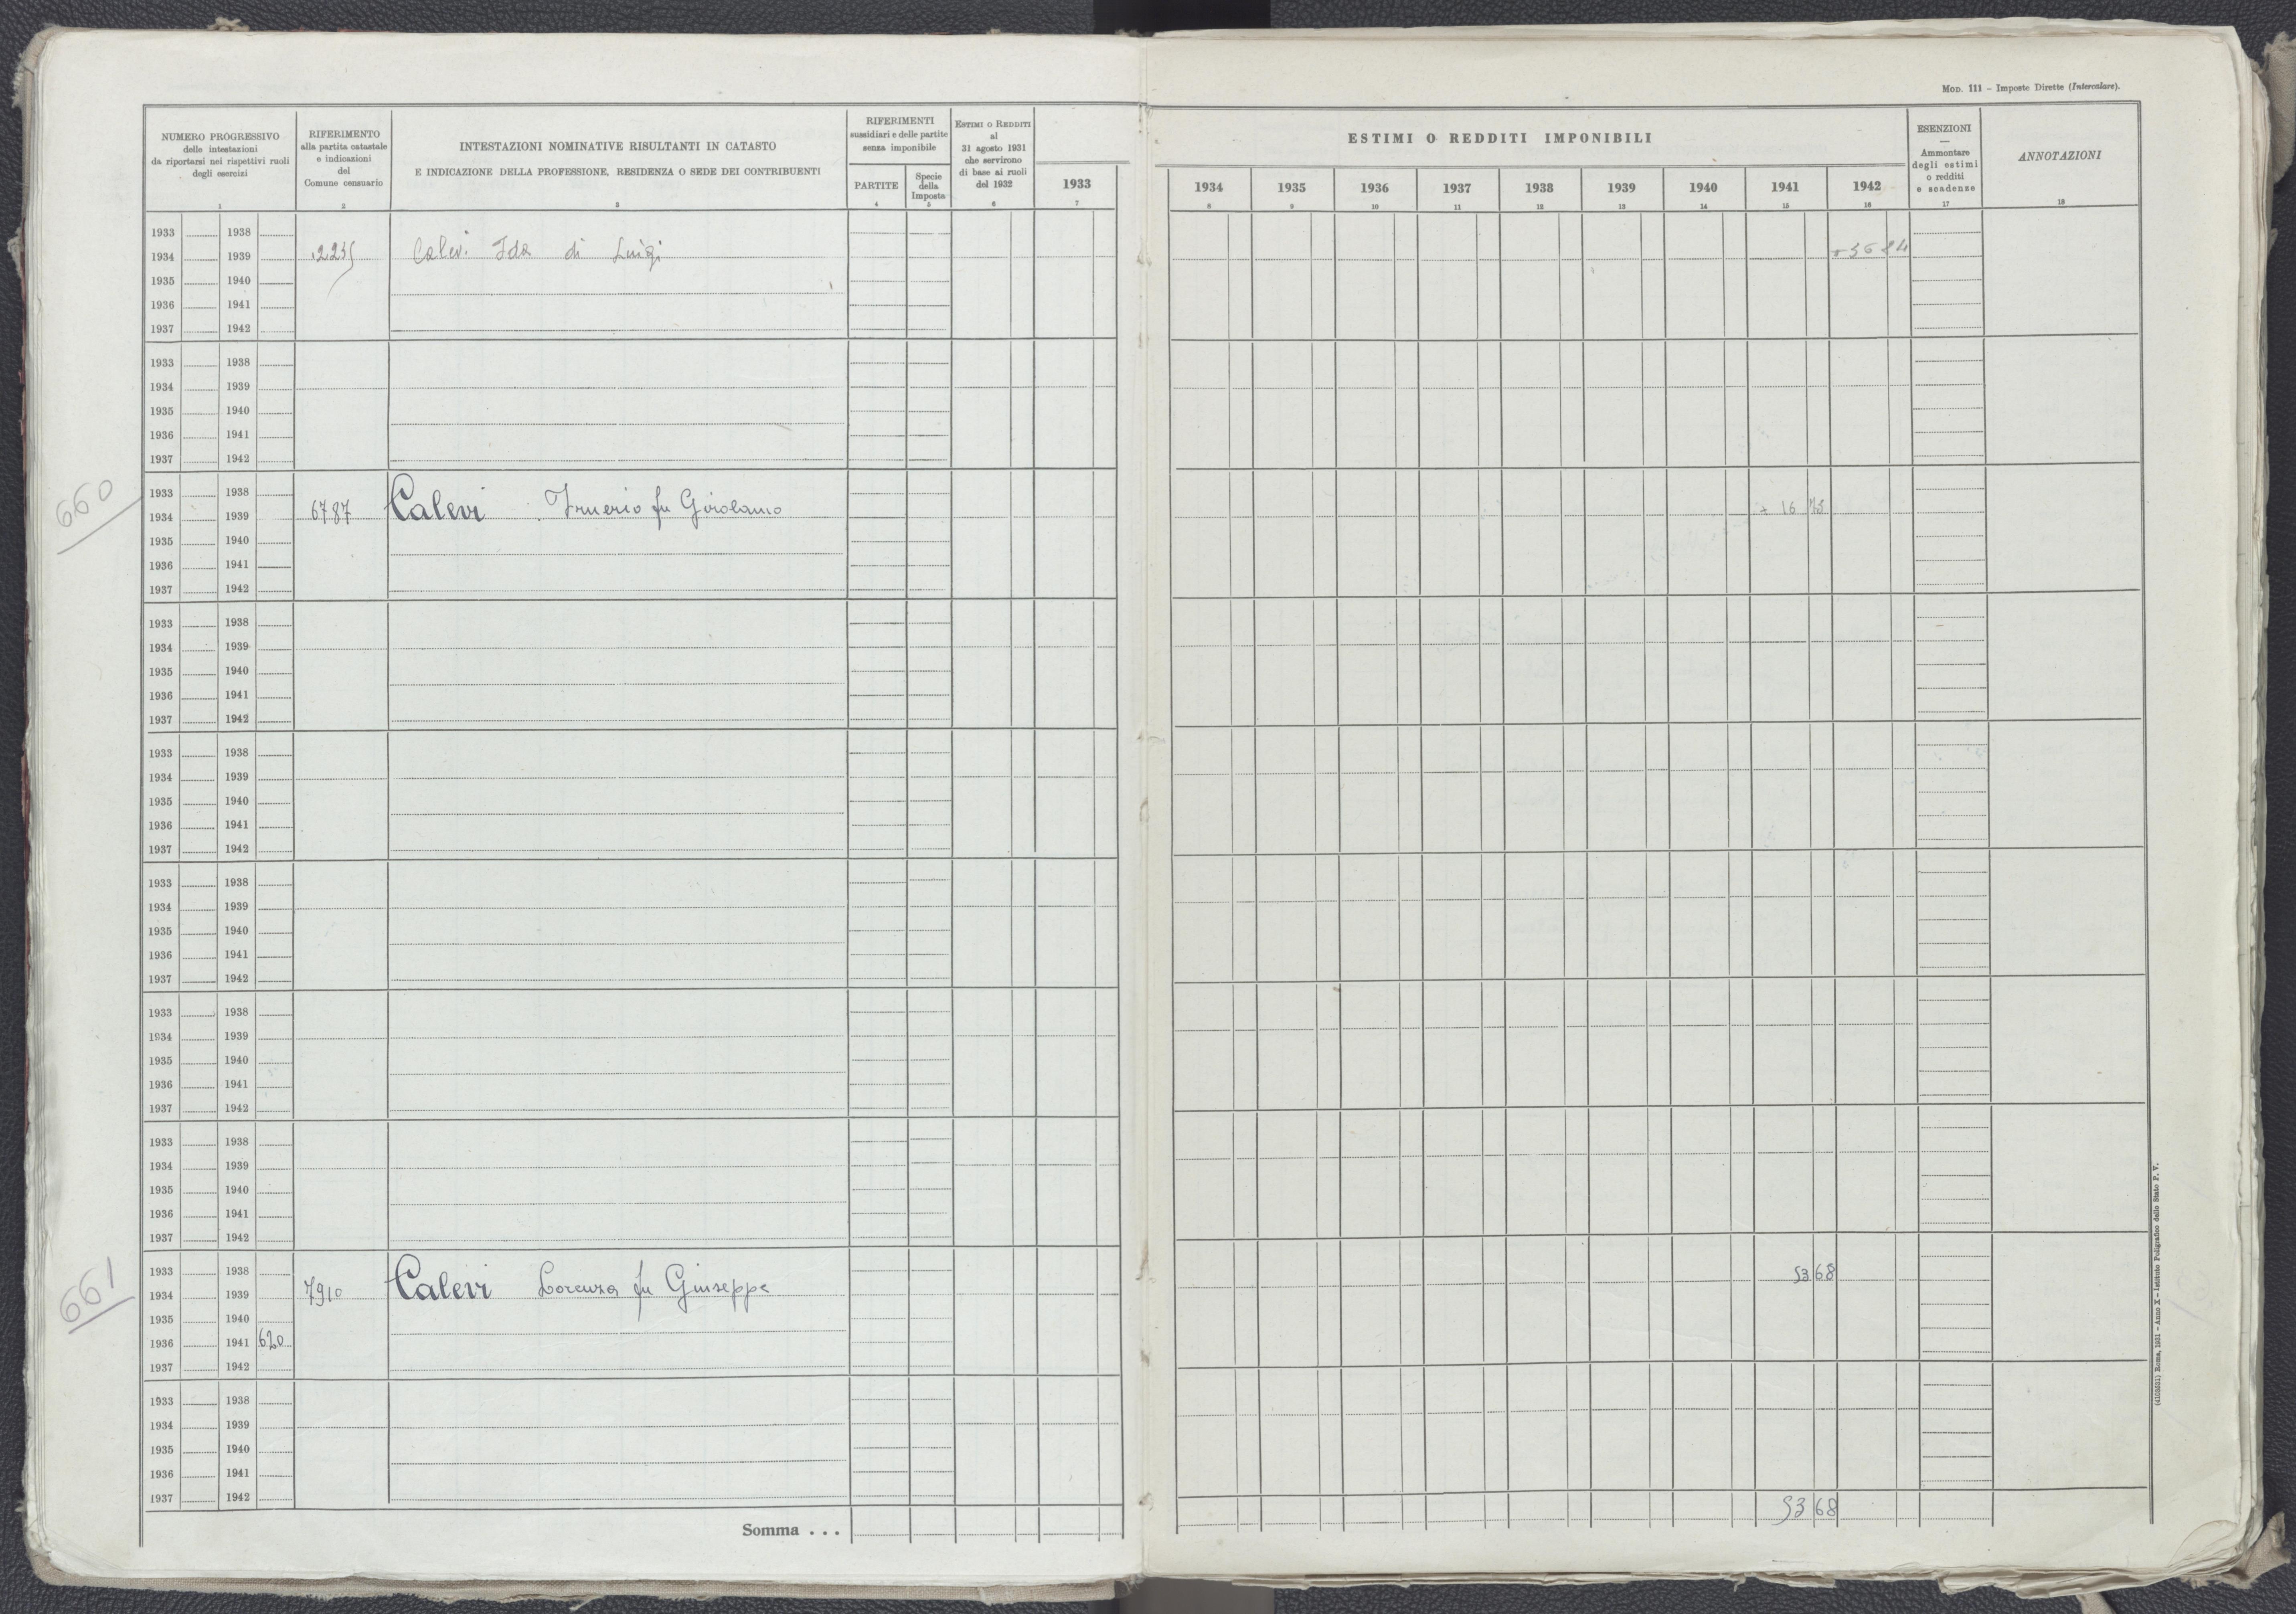 Mod. 111 – Imposte Dirette (Intercalare).
NUMERO PROGRESSIVO
delle intestazioni
da riportarsi nei rispettivi ruoli
degli esercizi
1
RIFERIMENTO
alla partita catastale
e indicazioni
del
Comune censuario
2
INTESTAZIONI NOMINATIVE RISULTANTI IN CATASTO
E INDICAZIONE DELLA PROFESSIONE, RESIDENZA O SEDE DEI CONTRIBUENTI
3
RIFERIMENTI
sussidiari e delle partite
senza imponibile
PARTITE
4
Specie
della
Imposta
5
Estimi o Redditi
al
31 agosto 1931
che servirono
di base ai ruoli
del 1932
6
1933
7
ESTIMI O REDDITI IMPONIBILI
1934 1935 1936 1937 1938 1939 1940 1941 1942
8 9 10 11 12 13 14 15 16
ESENZIONI
—
Ammontare
degli estimi
o redditi
e scadenze
17
ANNOTAZIONI
18
1933 1938
1934 1939 Calevi Ida di Luigi
1935 1940
1936 1941
1937 1942
1933 1938
1934 1939
1935 1940
1936 1941
1937 1942
660
1933 1938
1934 1939 6787 Calevi Irnerio fu Girolamo + 16
1935 1940
1936 1941
1937 1942
1933 1938
1934 1939
1935 1940
1936 1941
1937 1942
1933 1938
1934 1939
1935 1940
1936 1941
1937 1942
1933 1938
1934 1939
1935 1940
1936 1941
1937 1942
1933 1938
1934 1939
1935 1940
1936 1941
1937 1942
1933 1938
1934 1939
1935 1940
1936 1941
1937 1942
661
1933 1938 53 68
1934 1939 7910 Calevi Lorenza fu Giuseppe
1935 1940
1936 1941 620
1937 1942
1933 1938
1934 1939
1935 1940
1936 1941
1937 1942
Somma . . . 53 68
(4103531) Roma, 1931 - Anno X - Istituto Poligrafico dello Stato P. V.